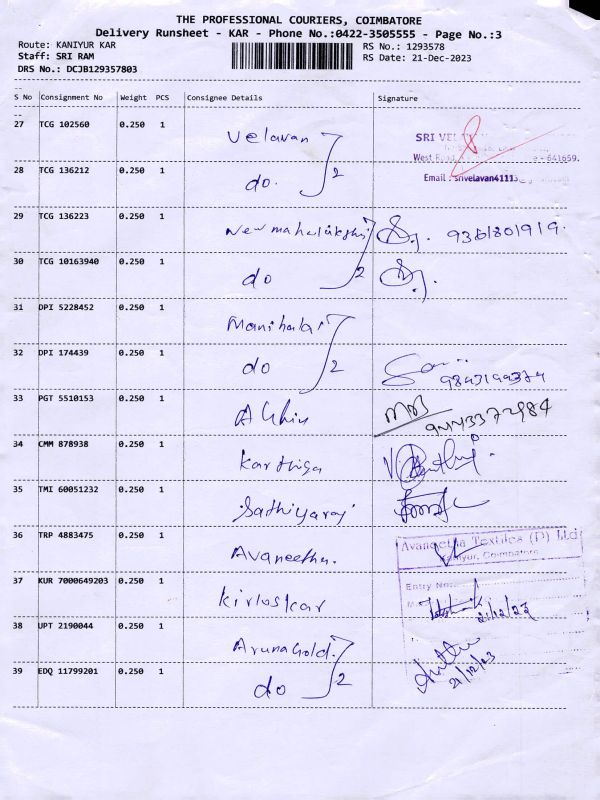 THE PROFESSIONAL COURIERS, COIMBATORE
Delivery Runsheet - KAR - Phone No.:0422-3505555 - Page No.:3
Route: KANIYUR KAR RS No.: 1293578
Staff: SRI RAM RS Date: 21-Dec-2023
DRS No.: DCJB129357803
S No Consignment No Weight PCS Consignee Details Signature
27 TCG 102560 0.250 1 Velavan
SRI VEL
West Road, - 641659.
28 TCG 136212 0.250 1 do. 2
Email : srivelavan41113
29 TCG 136223 0.250 1 New mahalakshmi
30 TCG 10163940 0.250 1 do 2
31 DPI 5228452 0.250 1
32 DPI 174439 0.250 1 do 2
33 PGT 5510153 0.250 1
34 CMM 878938 0.250 1 Karthiga
35 TMI 60051232 0.250 1 Sathiyaraj
36 TRP 4883475 0.250 1 Avaneetha.
Avaneetha Textiles (P) Ltd
Kaniyur, Coimbatore
37 KUR 7000649203 0.250 1 Kirloskar
Entry No:
21/12/23
38 UPT 2190044 0.250 1 Aruna Gold.
39 EDQ 11799201 0.250 1 do 2
21/12/23